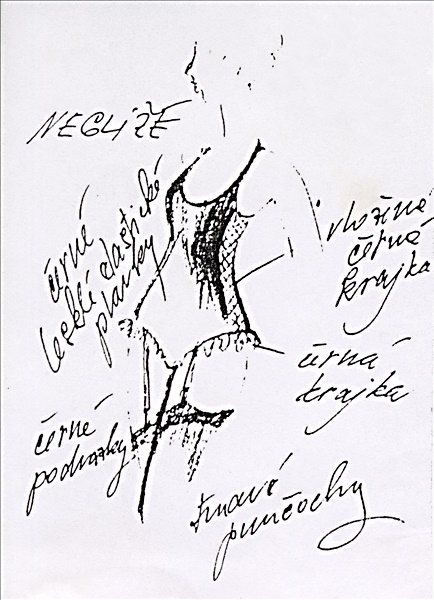 NEGLIŽE
černé
lesklé elastické
plavky
vložená
černá
krajka
černá
krajka
černé
podvazky
tmavé
punčochy